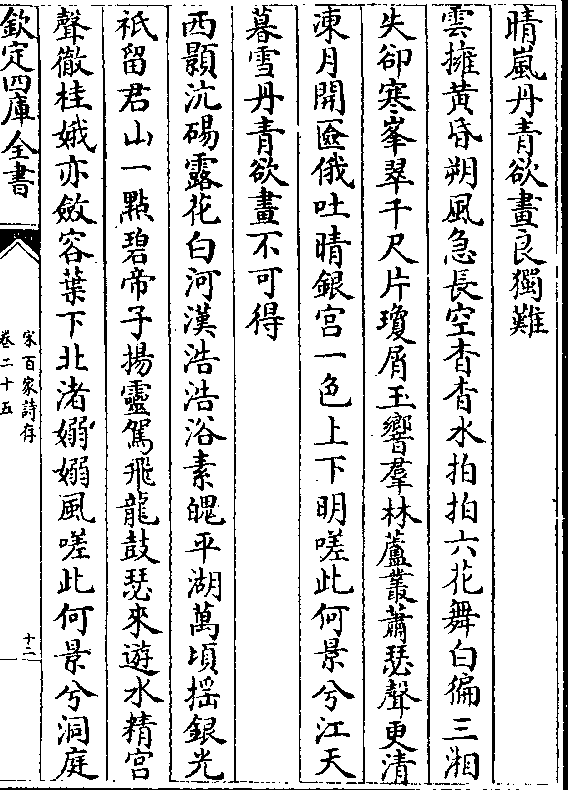 晴嵐丹青欲畫良獨難
雲擁黃昏朔風急長空杳杳水拍拍六花舞白徧三湘
失卻寒峯翠千尺片瓊屑玉響羣林蘆叢蕭瑟聲更清
凍月開匳俄吐晴銀宮一色上下明嗟此何景兮江天
暮雪丹青欲畫不可得
西顥沆碭露花白河漢浩浩浴素魄平湖萬頃揺銀光
祇留君山一點碧帝子揚靈駕飛龍鼓瑟來遊水精宮
聲徹桂娥亦斂容葉下北渚嫋嫋風嗟此何景兮洞庭
欽定四庫全書
宋百家詩存
卷二十五
十二